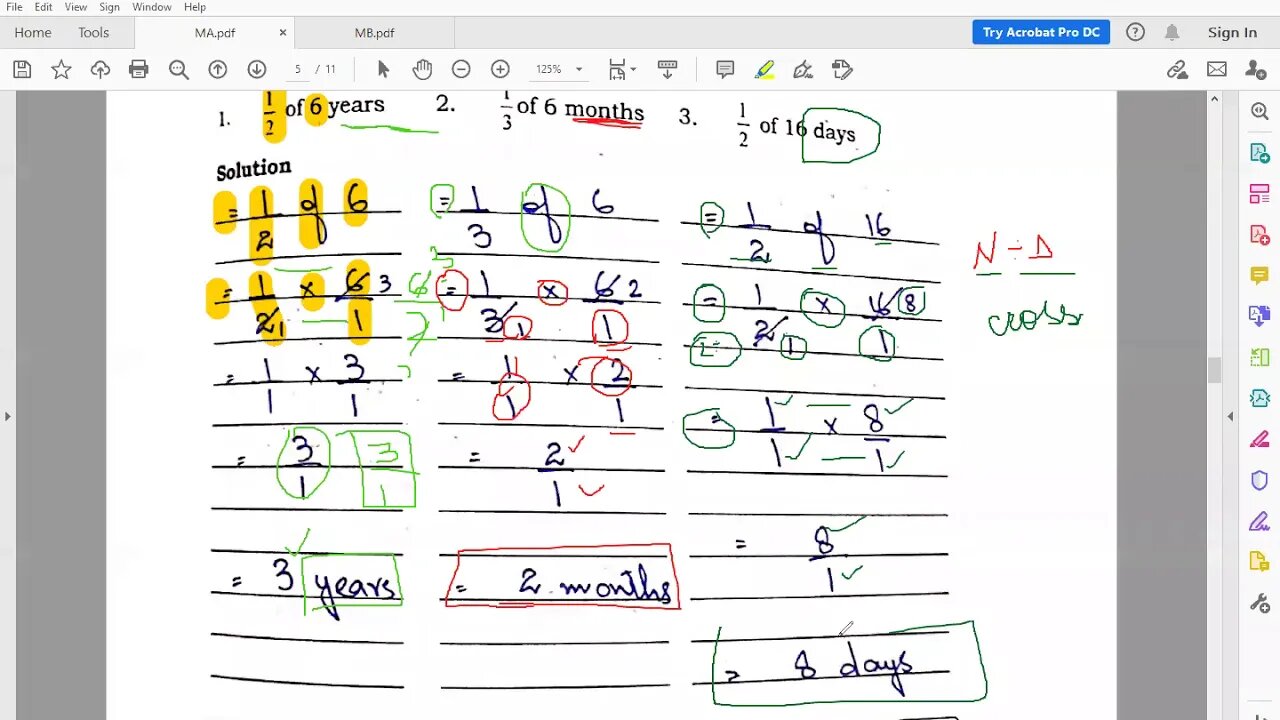 File Edit View Sign Window Help
Home Tools MA.pdf × MB.pdf Try Acrobat Pro DC Sign In
5 / 11 125%
1. 1/2 of 6 years 2. 1/3 of 6 months 3. 1/2 of 16 days
Solution
= 1/2 of 6
= 1/2 1 × 6/1 3
= 1/1 × 3/1
= 3/1 3/1
= 3 years
= 1/3 of 6
= 1/3 1 × 6/1 2
= 1/1 × 2/1
= 2/1
= 2 months
= 1/2 of 16
= 1/2 1 × 16/1 8
= 1/1 × 8/1
= 8/1
= 8 days
N - D
cross